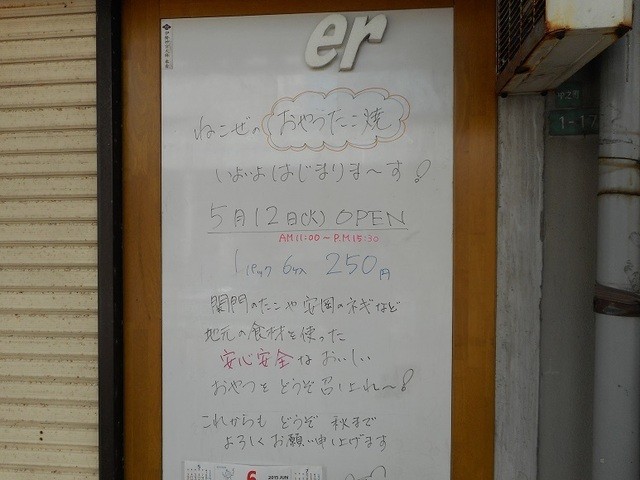 er
ねこぜの おやつたこ焼
いよいよはじまりま〜す!
5月12日(火) OPEN
AM.11:00〜P.M.15:30
1パック 6ケ入 250円
関門のたこや安岡のネギなど
地元の食材を使った
安心安全なおいしい
おやつを どうぞ召し上れ〜!
これからも どうぞ 秋まで
よろしくお願い申し上げます
6
1-17